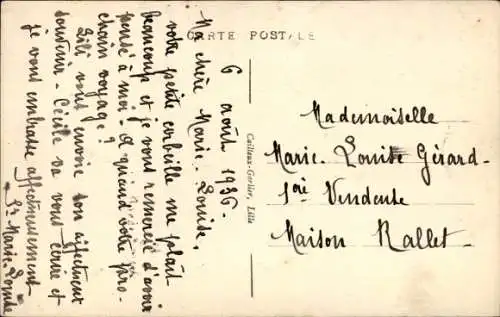 CARTE POSTALE
6 août 1936.
Ma chère Marie-Louise,
votre petite corbeille me plaît
beaucoup et je vous remercie d'avoir
pensé à moi - A quand votre pro-
chain voyage ?
Lili vous envoie son affectueux
souvenir - Cécile va vous écrire et
je vous embrasse affectueusement
Sr Marie Louise
Cailteux-Gorlier, Lille
Mademoiselle
Marie-Louise Gérard-
1ère Vendeuse
Maison Rallet-